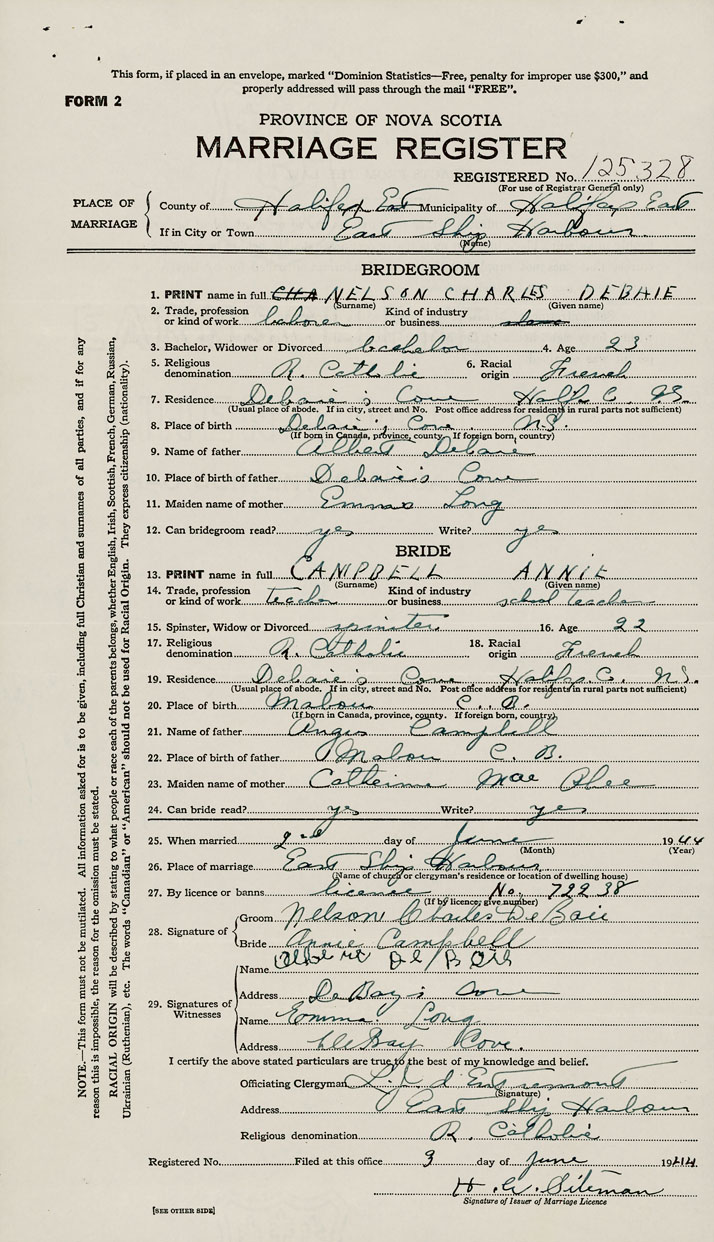 This form, if placed in an envelope, marked "Dominion Statistics—Free, penalty for improper use $300," and
properly addressed will pass through the mail "FREE".
FORM 2
PROVINCE OF NOVA SCOTIA
MARRIAGE REGISTER
REGISTERED No. 125328
(For use of Registrar General only)
PLACE OF MARRIAGE
County of Halifax East Municipality of Halifax East
If in City or Town East Ship Harbour
(Name)
BRIDEGROOM
1. PRINT name in full CHA NELSON CHARLES DEBAIE
(Surname) (Given name)
2. Trade, profession or kind of work laborer Kind of industry or business
3. Bachelor, Widower or Divorced bachelor 4. Age 23
5. Religious denomination R. Catholic 6. Racial origin French
7. Residence Debaie's Cove Halfx C. NS
(Usual place of abode. If in city, street and No. Post office address for residents in rural parts not sufficient)
8. Place of birth Debaie's Cove N.S.
(If born in Canada, province, county. If foreign born, country)
9. Name of father Albert Debaie
10. Place of birth of father Debaie's Cove
11. Maiden name of mother Emma Long
12. Can bridegroom read? yes Write? yes
BRIDE
13. PRINT name in full CAMPBELL ANNIE
(Surname) (Given name)
14. Trade, profession or kind of work teacher Kind of industry or business school teacher
15. Spinster, Widow or Divorced spinster 16. Age 22
17. Religious denomination R. Catholic 18. Racial origin French
19. Residence Debaie's Cove Halfx C. N.S.
(Usual place of abode. If in city, street and No. Post office address for residents in rural parts not sufficient)
20. Place of birth Mabou C. B.
(If born in Canada, province, county. If foreign born, country)
21. Name of father Angus Campbell
22. Place of birth of father Mabou C. B.
23. Maiden name of mother Catherine Mac Phee
24. Can bride read? yes Write? yes
25. When married 2nd day of June 1944
(Month) (Year)
26. Place of marriage East Ship Harbour
(Name of church or clergyman's residence or location of dwelling house)
27. By licence or banns licence No. 72238
(If by licence, give number)
28. Signature of
Groom Nelson Charles DeBaie
Bride Annie Campbell
29. Signatures of Witnesses
Name Albert De/B
Address DeBay's Cove
Name Emma Long
Address DeBay Cove.
I certify the above stated particulars are true to the best of my knowledge and belief.
Officiating Clergyman d'Entremont
(Signature)
Address East Ship Harbour
Religious denomination R. Catholic
Registered No. Filed at this office 3 day of June 1944
H. W. Siteman
Signature of Issuer of Marriage Licence
[SEE OTHER SIDE]
NOTE.—This form must not be mutilated. All information asked for is to be given, including full Christian and surnames of all parties, and if for any
reason this is impossible, the reason for the omission must be stated.
RACIAL ORIGIN will be described by stating to what people or race each of the parents belongs, whether English, Irish, Scottish, French, German, Russian,
Ukrainian (Ruthenian), etc. The words "Canadian" or "American" should not be used for Racial Origin. They express citizenship (nationality).